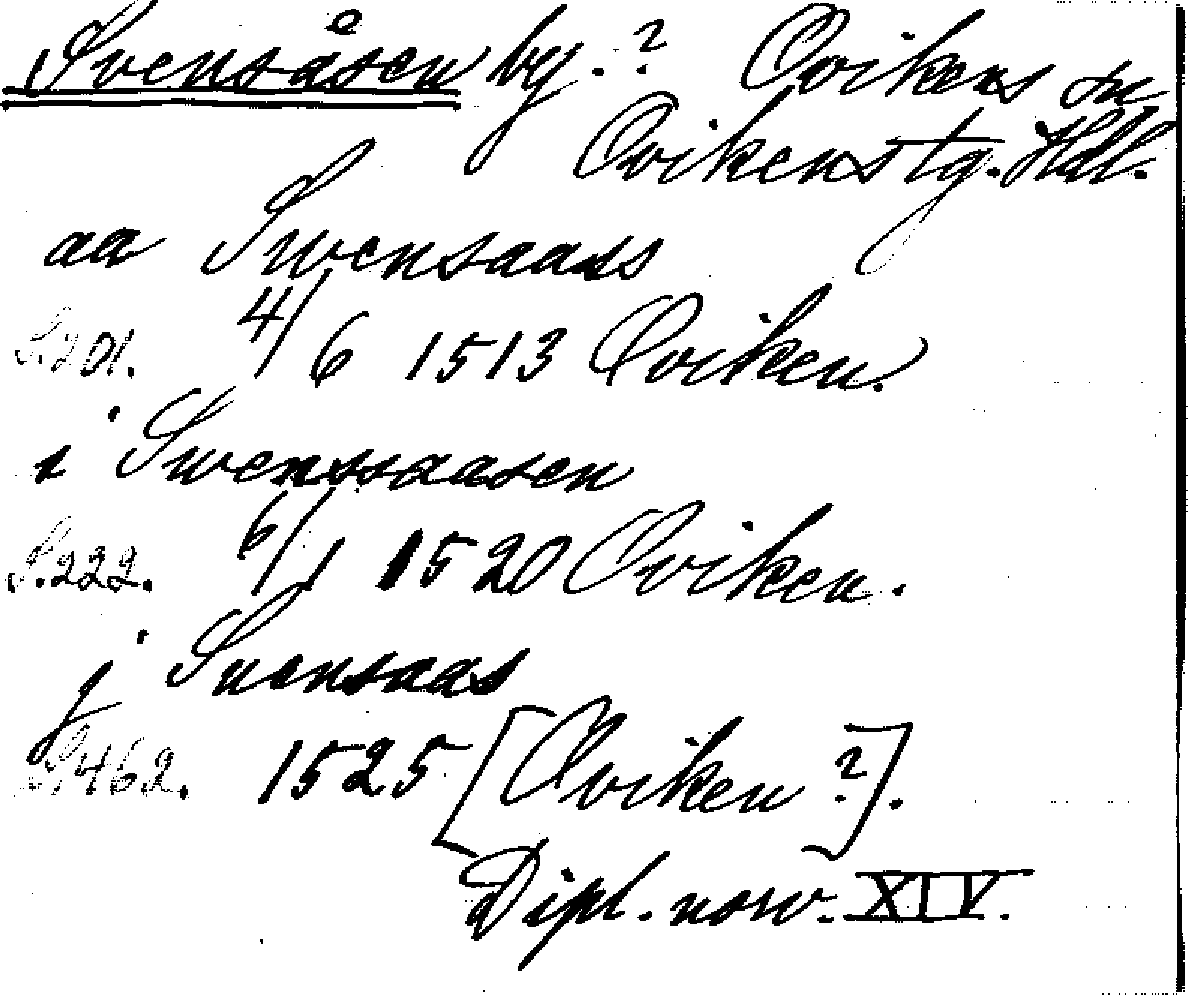 Svensåsen by.? Ovikens sn
Ovikens tg. Jtl.
aa Swensaass
S.201. 4/6 1513 Oviken.
i Swenssaasen
S.222. 6/1 1520 Oviken.
j Suensaas
S.462. 1525 [Oviken ?].
Dipl. norv. XIV.